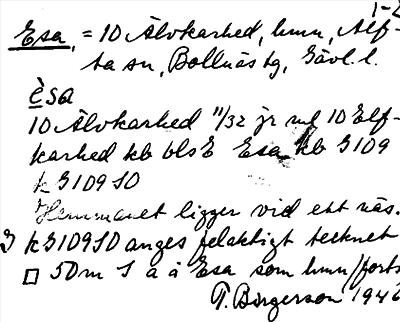 1-2
Esa, = 10 Älvkarhed, hmn, Alf-
ta sn, Bollnäs tg, Gävl. l.
èsa
10 Älvkarhed 11/32 jr nr 10 Elf-
karhed kb bls E Esa kb 3109
k 3109 SO
Hemmanet ligger vid ett näs.
k 3109 SO anges felaktigt tecknet
□ 50 m S a å Esa som hmn/forts
T. Birgerson 1946